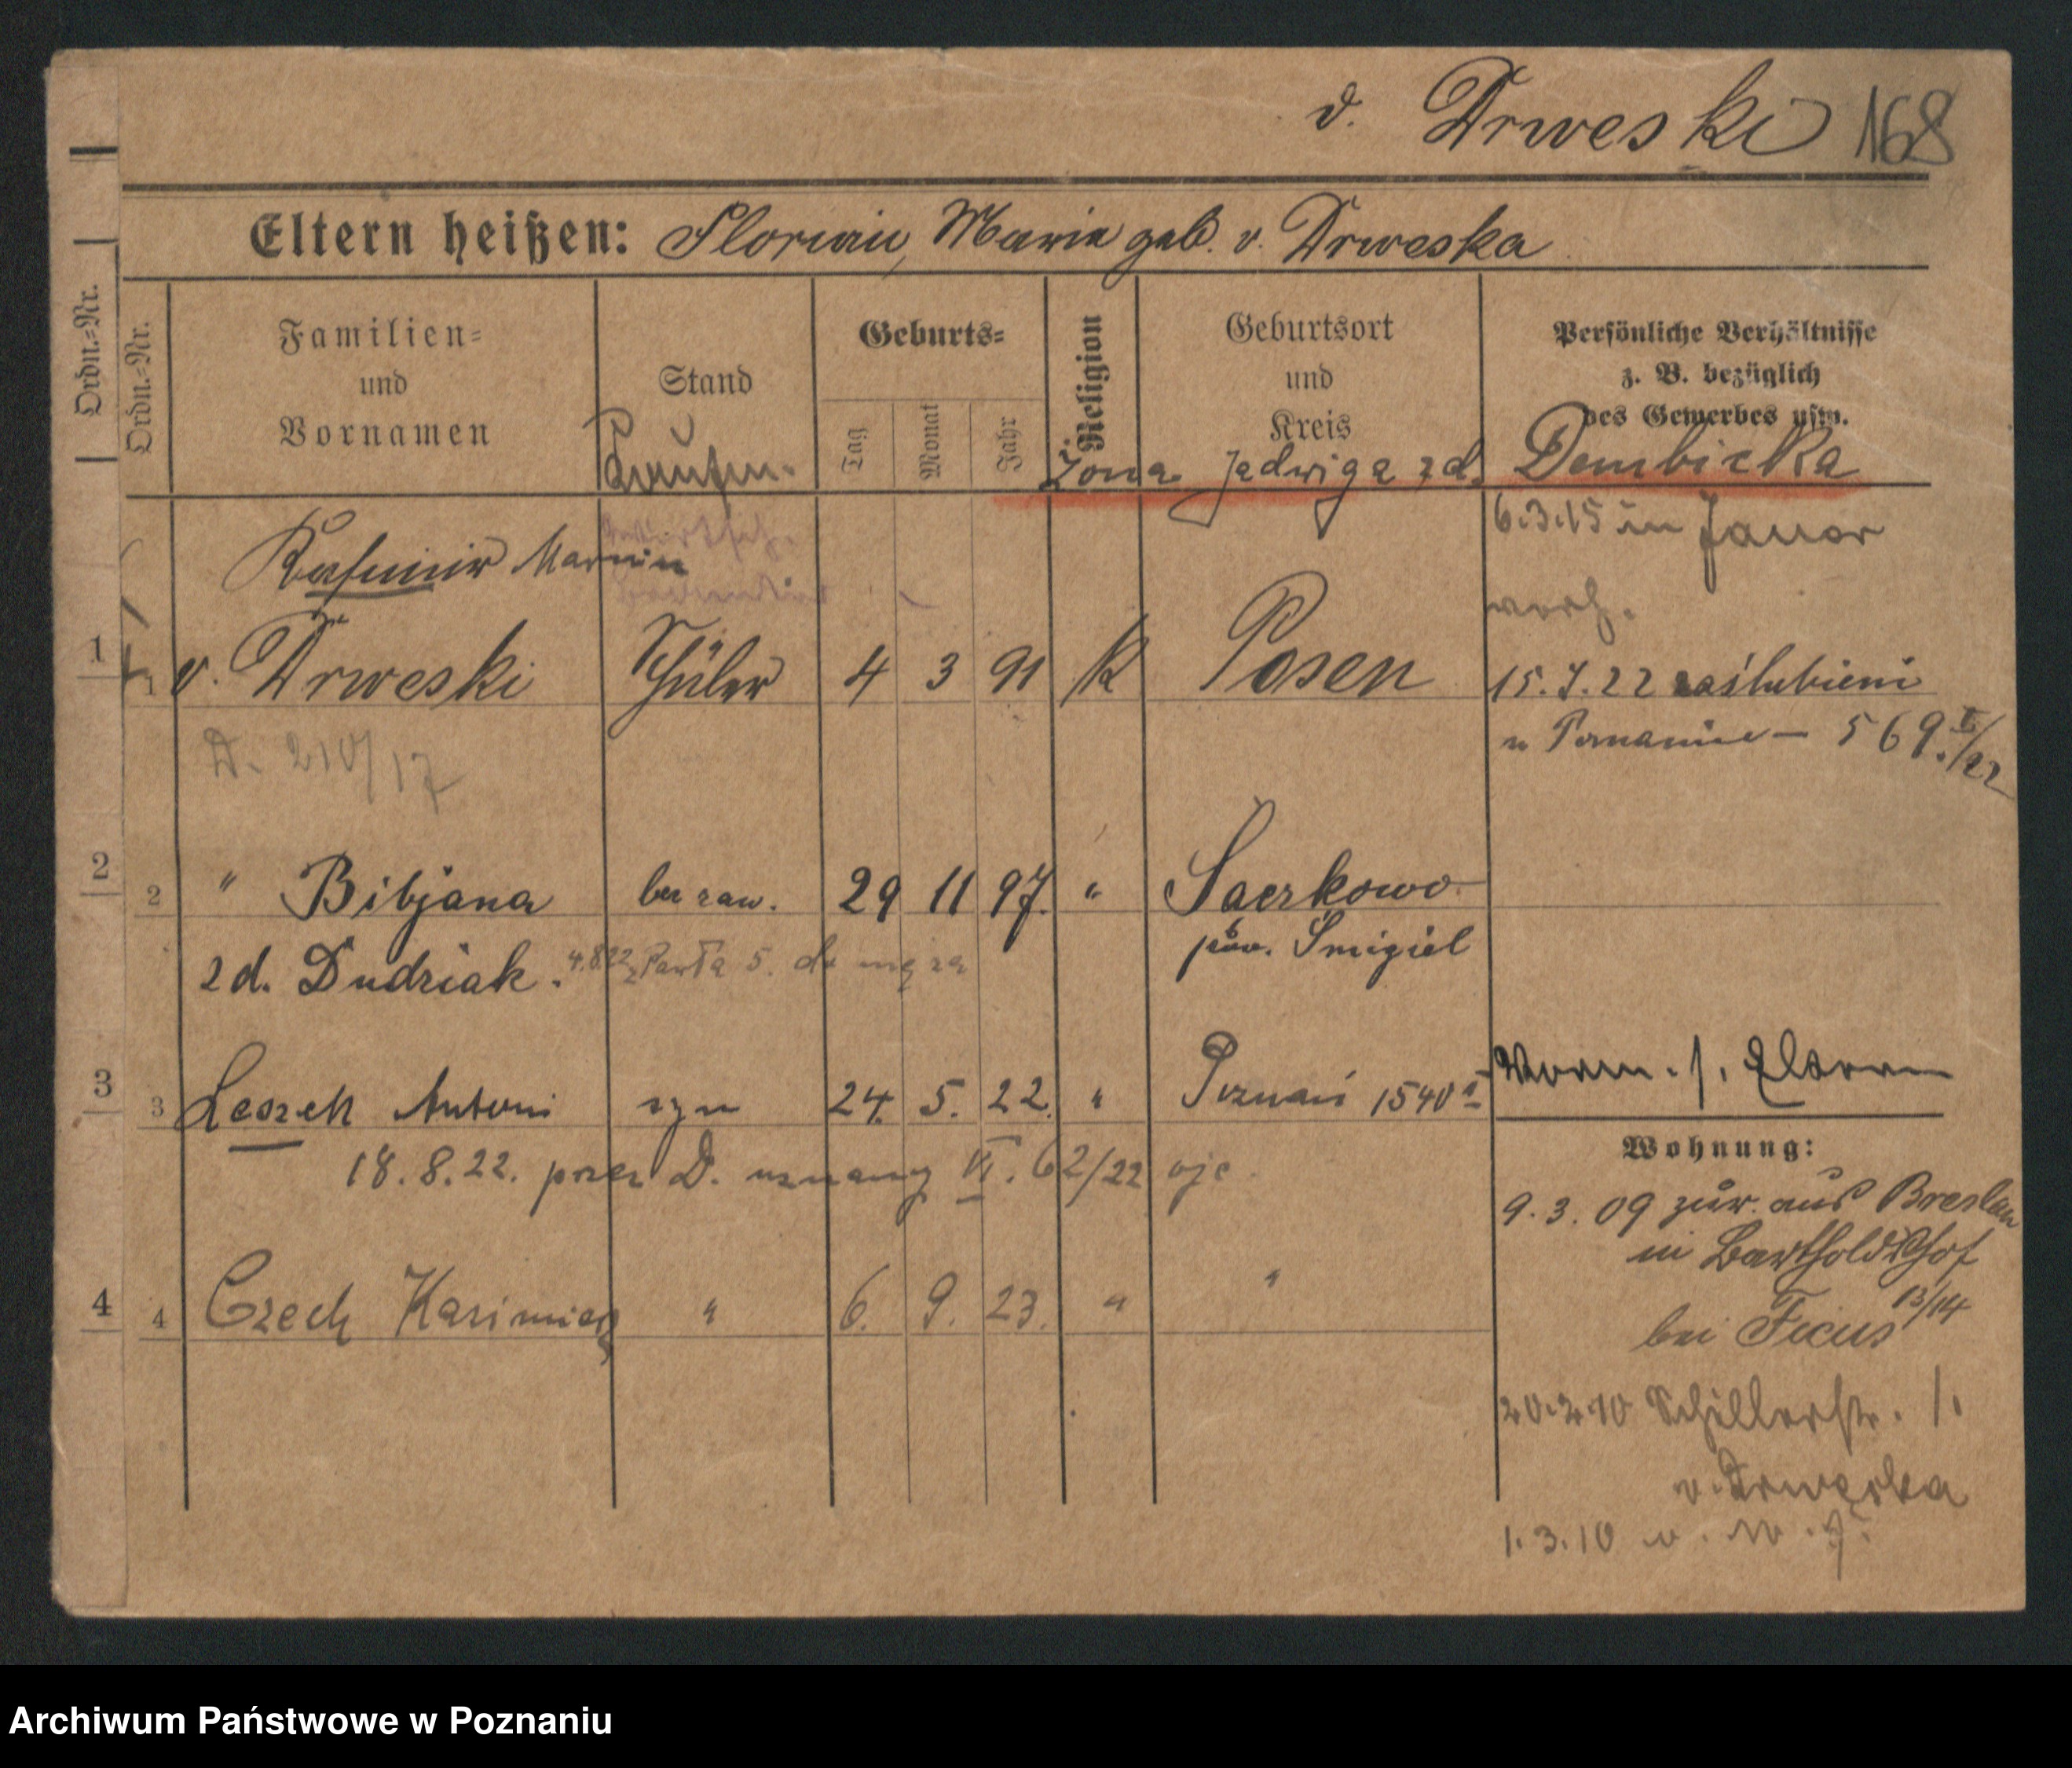 v. Drweski 168
Eltern heißen: Florian, Maria geb. v. Drweska
Ordn.-Nr.
Ordn.-Nr.
Familien- und Vornamen
Stand
Geburts-
Tag
Monat
Jahr
Religion
Geburtsort und Kreis
Persönliche Verhältnisse z. B. bezüglich des Gewerbes usw.
Kaufm.
Żona Jadwiga zd. Dembicka
6.3.15 in Jauer
verh.
Kasimir Marian
1 1 v. Drweski Schüler 4 3 91 K Posen
15.7.22 zaślubieni
w Poznaniu – 569.I/22
D. 210/17
2 2 " Bibjana bez zaw. 29 11 97. " Saczkowo
pow. Śmigiel
zd. Dudziak. 4.8.22 z Pawła 5. do męża
3 3 Leszek Antoni syn 24. 5. 22. " Poznań 1540
18.8.22. przez D. uznany VI. 62/22 ojc
4 4 Czech Kazimierz " 6. 9. 23. " "
Wohnung:
9.3.09 zur. aus Breslau
in Bartholdshof
bei Ficus 13/14
20.2.10 Schillerstr. 1.
v. Drweska
1.3.10
Archiwum Państwowe w Poznaniu